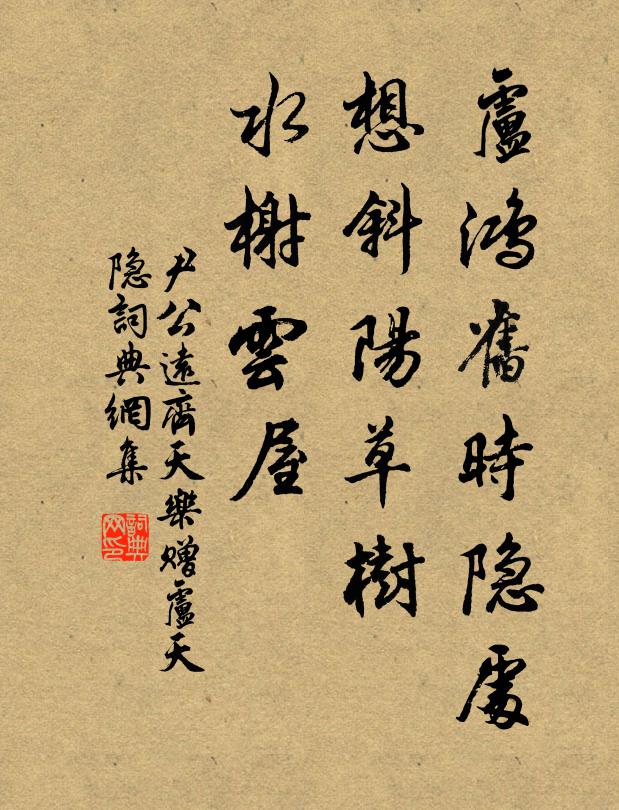 盧鴻舊時隐處
想斜陽草樹
水榭雲屋
尹公遠齊天樂贈盧天
隐詞典網集
詞典网印